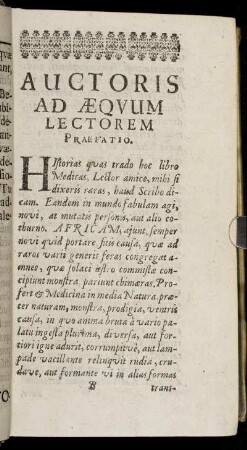 AUCTORIS
AD ÆQVUM
LECTOREM
PRAEFATIO.
HIstorias quas trado hoc libro
Medicas, Lector amice, mihi si
dixeris raras, haud Scribo di-
cam. Eandem in mundo fabulam agi,
novi, at mutatis personis, aut alio co-
thurno. AFRICAM, ajunt, semper
novi quid portare suis causâ, quæ ad
raros varii generis feras congregat a-
mnes, quæ solaci æstro commistæ con-
cipiunt monstra, pariunt chimæras. Pro-
fert & Medicina in media Natura, præ-
ter naturam, monstra, prodigia, ventris
causa, in quo anima bruta à vario pa-
latu ingesta pluchma, diversa, aut for-
tiori igne adurit, corrumpitvè, aut lam-
pade vacillante relinquit rudia, cru-
dave, aut formante vi in alias formas
B trans-